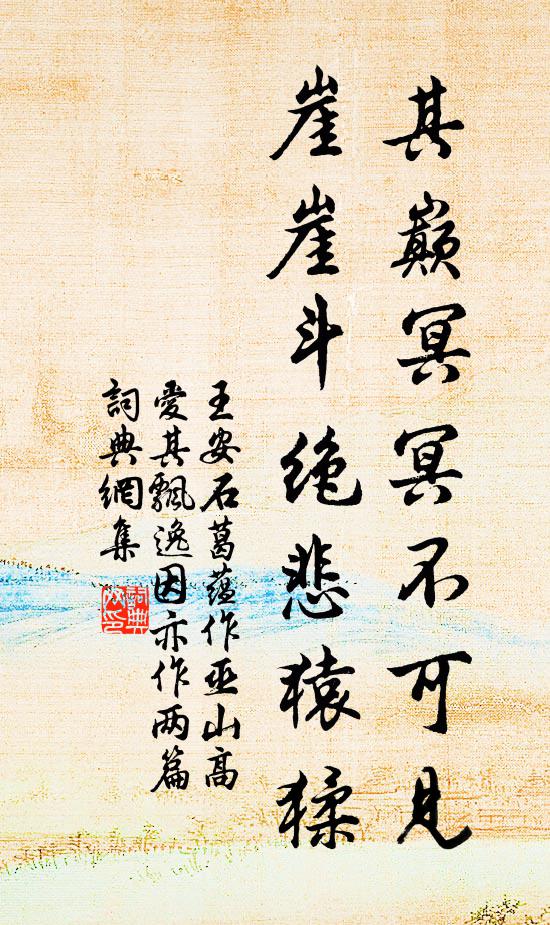 其巔冥冥不可見
崖崖斗絶悲猿猱
王安石葛蘊作巫山高
愛其飄逸因亦作两篇
詞典網集